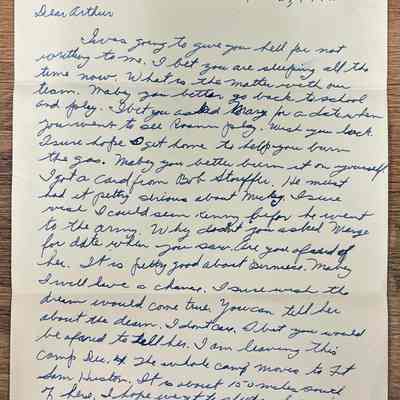 Dear Arthur
I was going to give you hell for not
writing to me. I bet you are sleeping all the
time now. What is the matter with our
team. Maby you better go back to school
and play. I bet you asked Marg for a date when
you went to see play. Wish you luck
I sure hope I get home to help you burn
the gas. Maby you better burn it on yourself
I got a card from Bob Stouffer. He must
had it pretty serious about Micky. I sure
wish I could seen Kenny befor he went
to the army. Why dont you asked Marge
for date when you saw. Are you afraid of
her. It is pretty good about Berneice. Maby
I will have a chance. I sure wish the
dream would come true. You can tell her
about the dream. I dont care. I bet you would
be afared to tell her. I am leaving this
camp Dec. The whole camp moves to Ft
Sam Huston. It is about 150 miles south
of here. I hope we